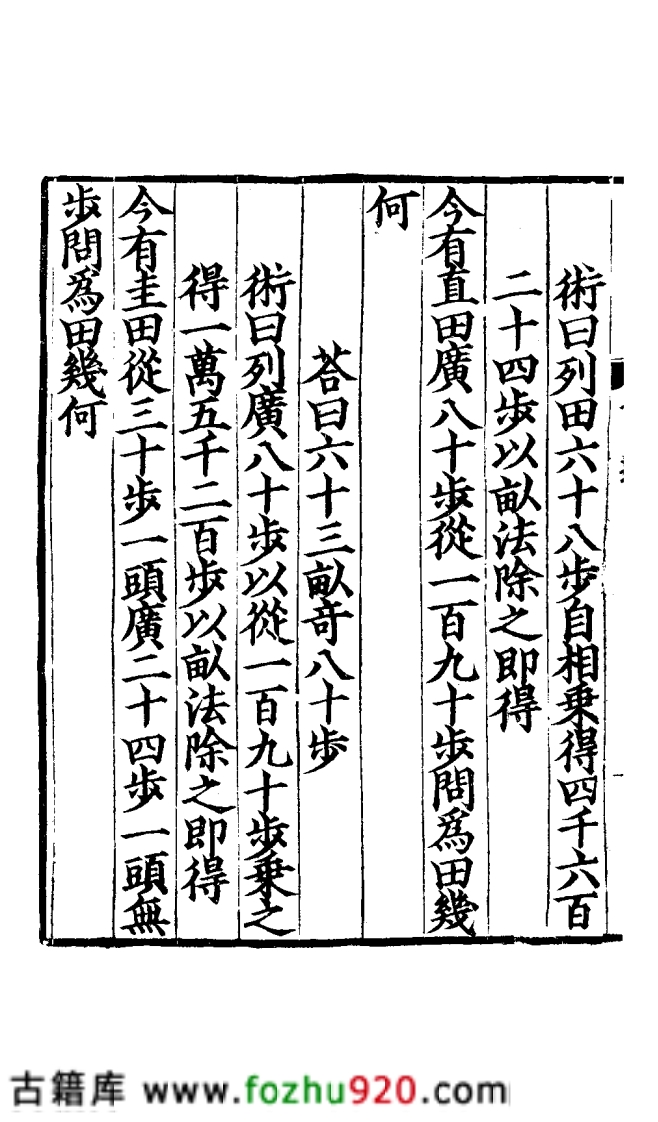 術曰列田六十八步自相乗得四千六百
二十四步以畝法除之即得
今有直田廣八十步從一百九十步問爲田幾
何
荅曰六十三畝奇八十步
術曰列廣八十步以從一百九十步乗之
得一萬五千二百步以畝法除之即得
今有圭田從三十步一頭廣二十四步一頭無
步問爲田幾何
古籍库 www.fozhu920.com